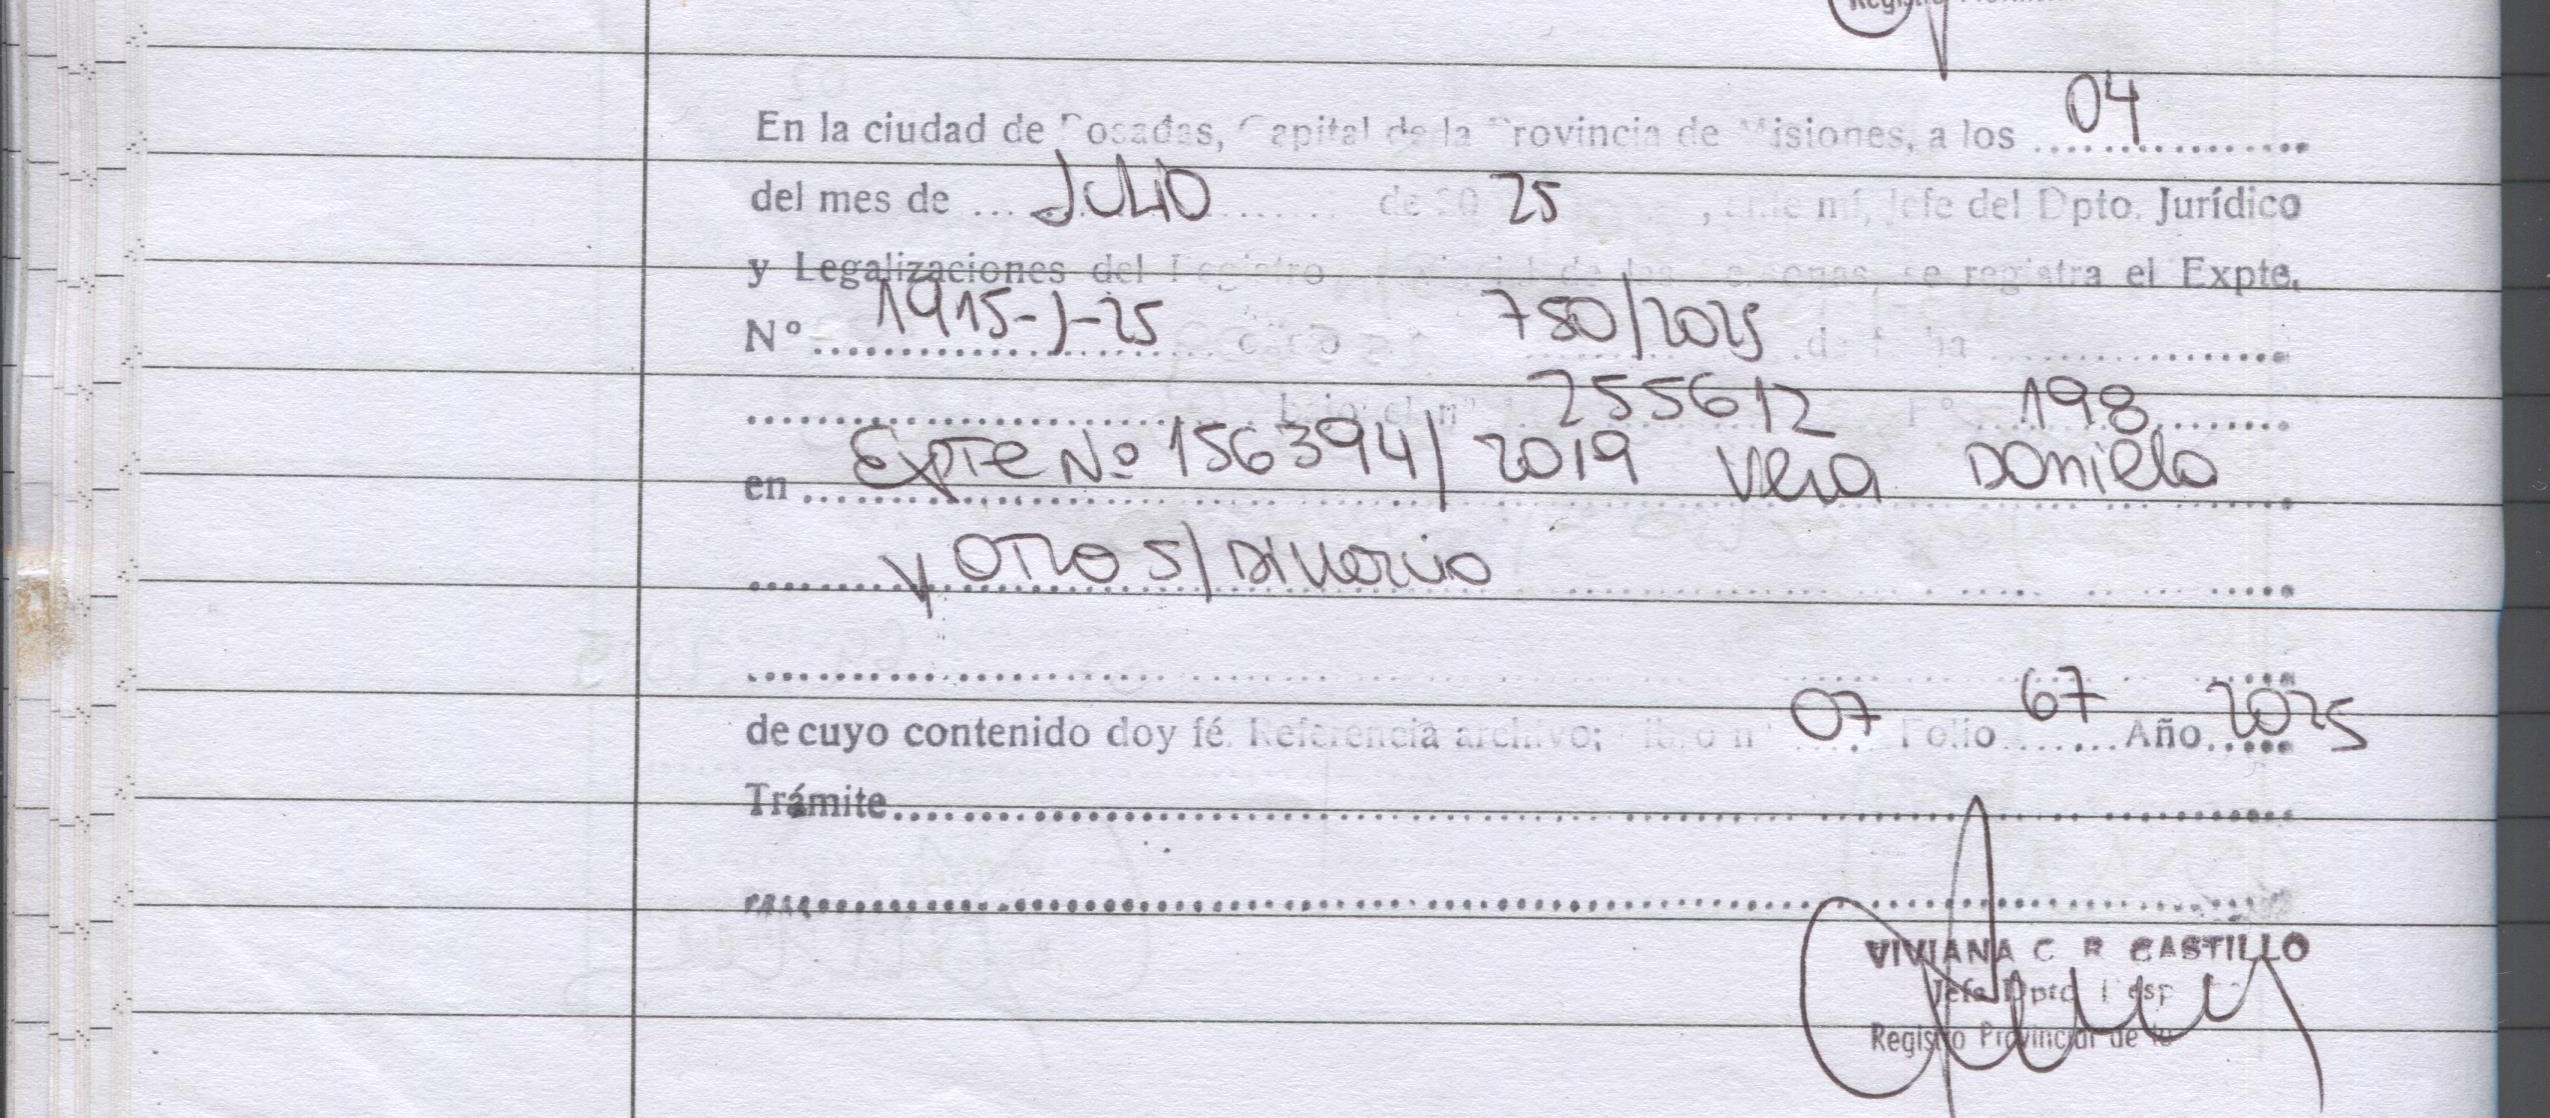 En la ciudad de Posadas, Capital de la Provincia de Misiones, a los 04
del mes de JULIO de 20 25, ante mí, Jefe del Dpto. Jurídico
y Legalizaciones del Registro Provincial de las Personas, se registra el Expte.
Nº 1915-J-25 oficio nº 780/2025 de fecha
bajo el nº 255612 Fº 198
en Expte Nº 156394/2019 Vera Daniela
y OTRO S/ Divorcio
de cuyo contenido doy fé. Referencia archivo; libro nº 07 Folio 67 Año 2025
Trámite
VIVIANA C R CASTILLO
Jefe Dpto
Registro Provincial de